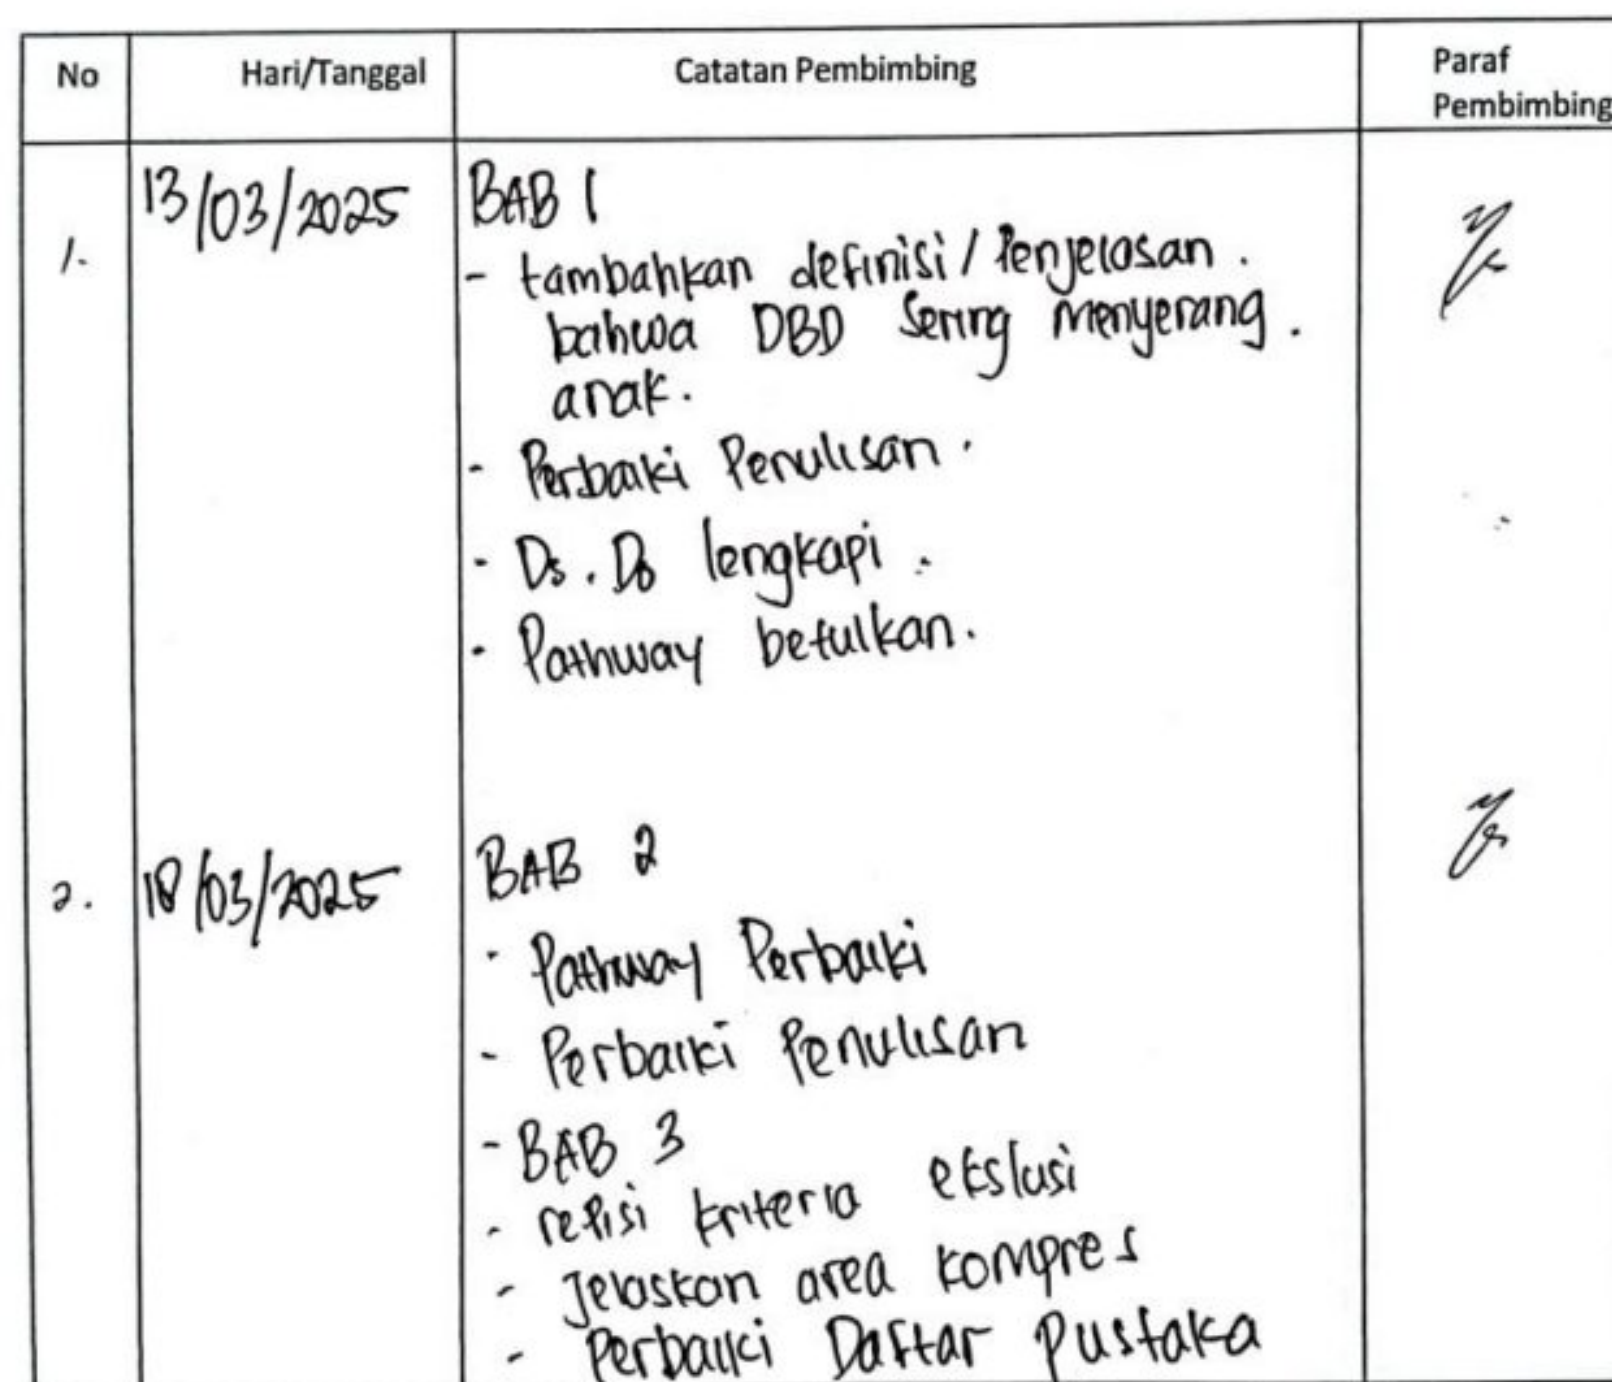 No Hari/Tanggal Catatan Pembimbing Paraf
Pembimbing
1. 13/03/2025 BAB 1
- tambahkan definisi / Penjelasan .
bahwa DBD Sering menyerang .
anak.
- Perbaiki Penulisan .
- Ds . Do lengkapi .
- Pathway betulkan.
2. 18/03/2025 BAB 2
- Pathway Perbaiki
- Perbaiki Penulisan
- BAB 3
- refisi kriteria ekslusi
- Jelaskan area kompres
- Perbaiki Daftar Pustaka